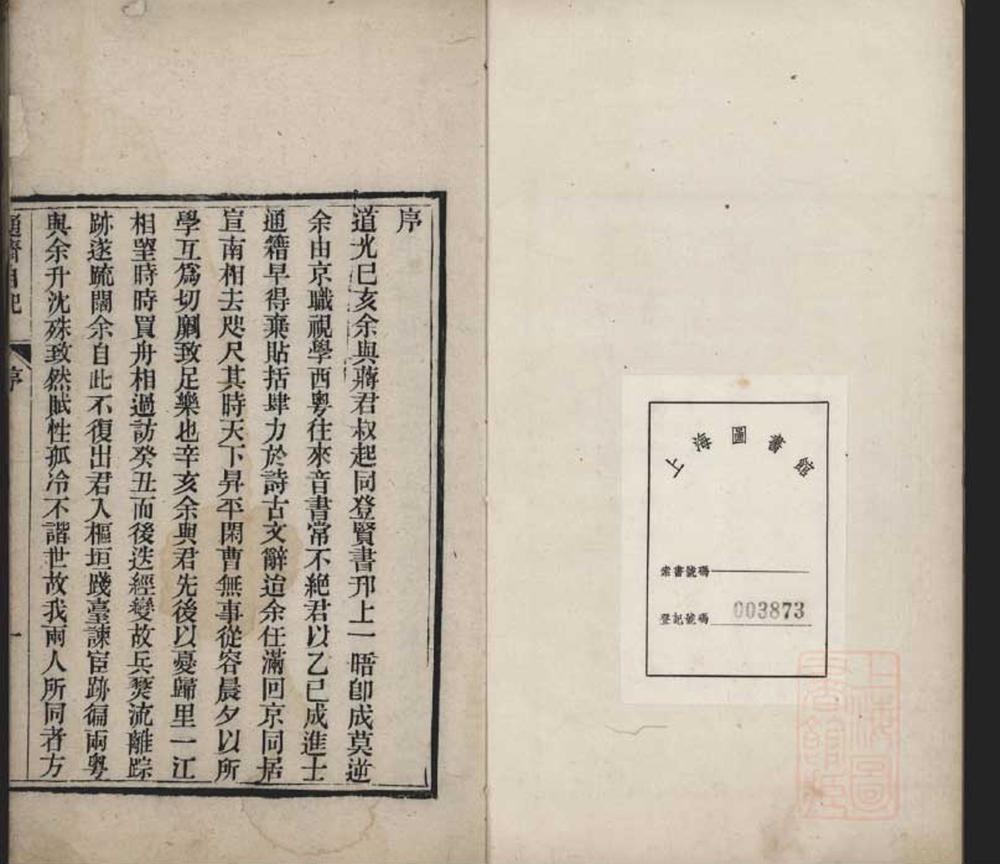 上海圖書館
索書號碼
登記號碼 003873
上海圖書館藏
序
道光己亥余與蔣君叔起同登賢書邗上一晤卽成莫逆
余由京職視學西粵往來音書常不絕君以乙巳成進士
通籍早得棄貼括肆力於詩古文辭迨余任滿回京同居
宣南相去咫尺其時天下昇平閑曹無事從容晨夕以所
學互爲切劘致足樂也辛亥余與君先後以憂歸里一江
相望時時買舟相過訪癸丑而後迭經變故兵燹流離踪
跡遂疏闊余自此不復出君入樞垣踐臺諫宦跡徧兩粵
與余升沈殊致然賦性孤冷不諧世故我兩人所同者方
通齋自記
序
一